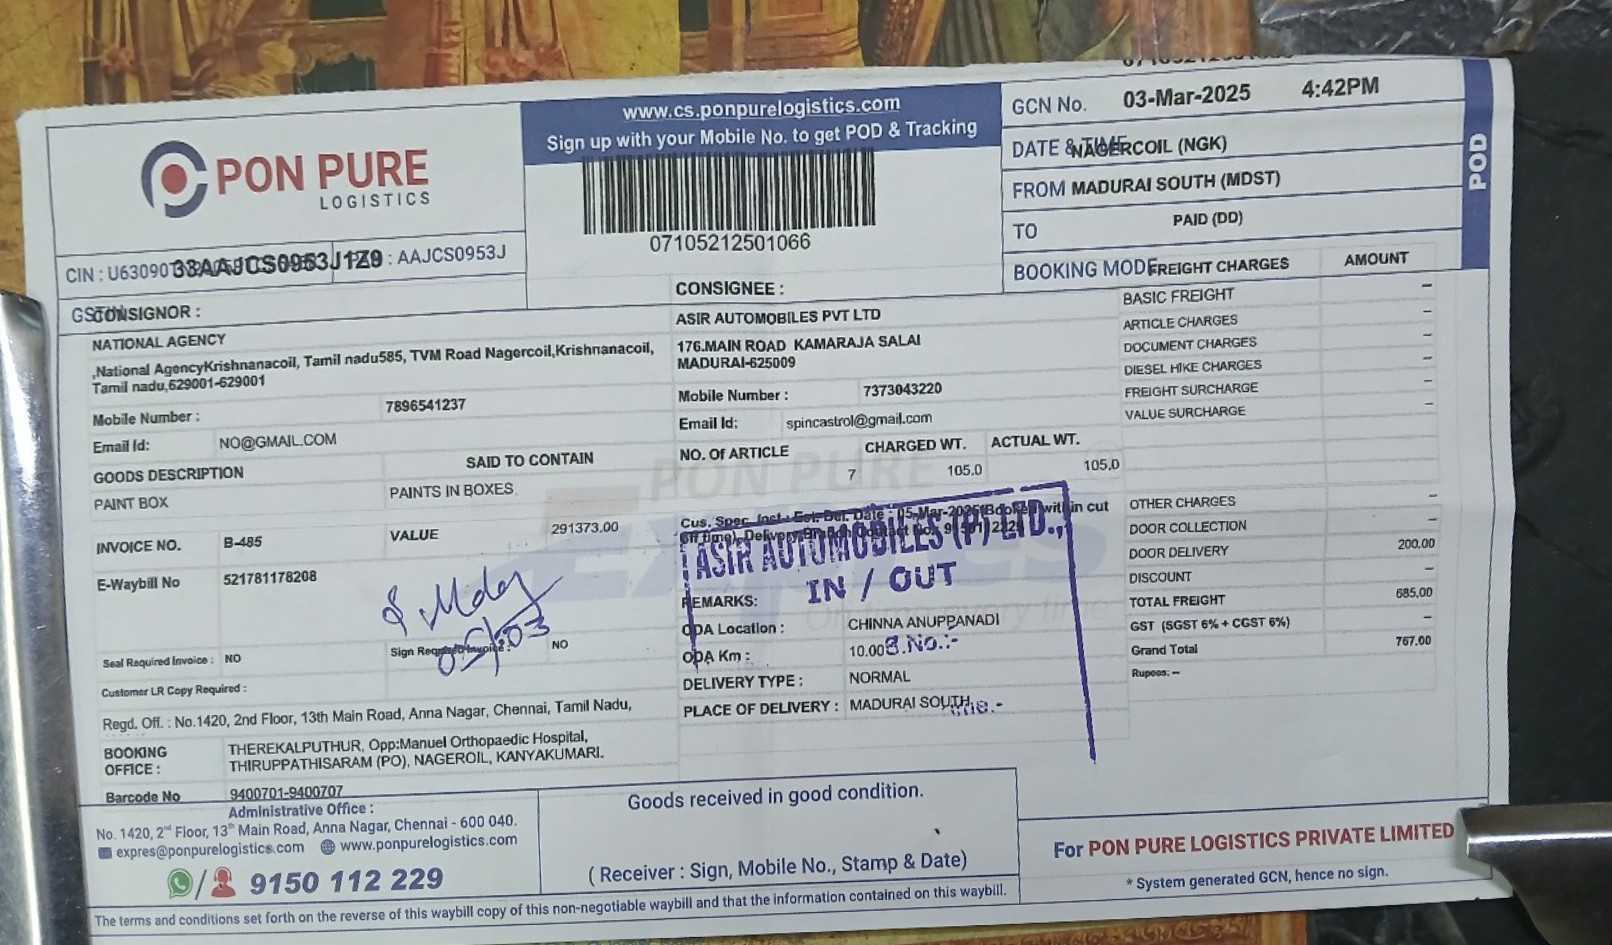 PON PURE
LOGISTICS
CIN : U63090T
33AAJCS0953J1Z9
: AAJCS0953J
www.cs.ponpurelogistics.com
Sign up with your Mobile No. to get POD & Tracking
07105212501066
GCN No. 03-Mar-2025 4:42PM
DATE & TIME NAGERCOIL (NGK)
FROM MADURAI SOUTH (MDST)
TO PAID (DD)
BOOKING MODE
POD
GSTIN
CONSIGNOR :
NATIONAL AGENCY
,National AgencyKrishnanacoil, Tamil nadu585, TVM Road Nagercoil,Krishnanacoil,
Tamil nadu,629001-629001
Mobile Number : 7896541237
Email Id: NO@GMAIL.COM
GOODS DESCRIPTION SAID TO CONTAIN
PAINT BOX PAINTS IN BOXES
INVOICE NO. B-485 VALUE 291373.00
E-Waybill No 521781178208
05/03
Seal Required Invoice : NO Sign Required Invoice : NO
Customer LR Copy Required :
Regd. Off. : No.1420, 2nd Floor, 13th Main Road, Anna Nagar, Chennai, Tamil Nadu,
BOOKING OFFICE : THEREKALPUTHUR, Opp:Manuel Orthopaedic Hospital,
THIRUPPATHISARAM (PO), NAGEROIL, KANYAKUMARI.
Barcode No 9400701-9400707
CONSIGNEE :
ASIR AUTOMOBILES PVT LTD
176.MAIN ROAD KAMARAJA SALAI
MADURAI-625009
Mobile Number : 7373043220
Email Id: spincastrol@gmail.com
NO. Of ARTICLE CHARGED WT. ACTUAL WT.
7 105.0 105.0
PON PURE
Cus. Spec. Inst : Est. Del. Date : 05-Mar-2025(Booked within cut
off time), Delivery Branch Contact No.
ASIR AUTOMOBILES (P) LTD.,
IN / OUT
REMARKS:
ODA Location : CHINNA ANUPPANADI
ODA Km : 10.00
S.No.:-
DELIVERY TYPE : NORMAL
PLACE OF DELIVERY : MADURAI SOUTH
FREIGHT CHARGES AMOUNT
BASIC FREIGHT –
ARTICLE CHARGES –
DOCUMENT CHARGES –
DIESEL HIKE CHARGES –
FREIGHT SURCHARGE –
VALUE SURCHARGE –
OTHER CHARGES –
DOOR COLLECTION –
DOOR DELIVERY 200.00
DISCOUNT –
TOTAL FREIGHT 685.00
GST (SGST 6% + CGST 6%) –
Grand Total 767.00
Rupees: –
Administrative Office :
No. 1420, 2nd Floor, 13th Main Road, Anna Nagar, Chennai - 600 040.
expres@ponpurelogistics.com www.ponpurelogistics.com
9150 112 229
Goods received in good condition.
( Receiver : Sign, Mobile No., Stamp & Date)
For PON PURE LOGISTICS PRIVATE LIMITED
* System generated GCN, hence no sign.
The terms and conditions set forth on the reverse of this waybill copy of this non-negotiable waybill and that the information contained on this waybill.